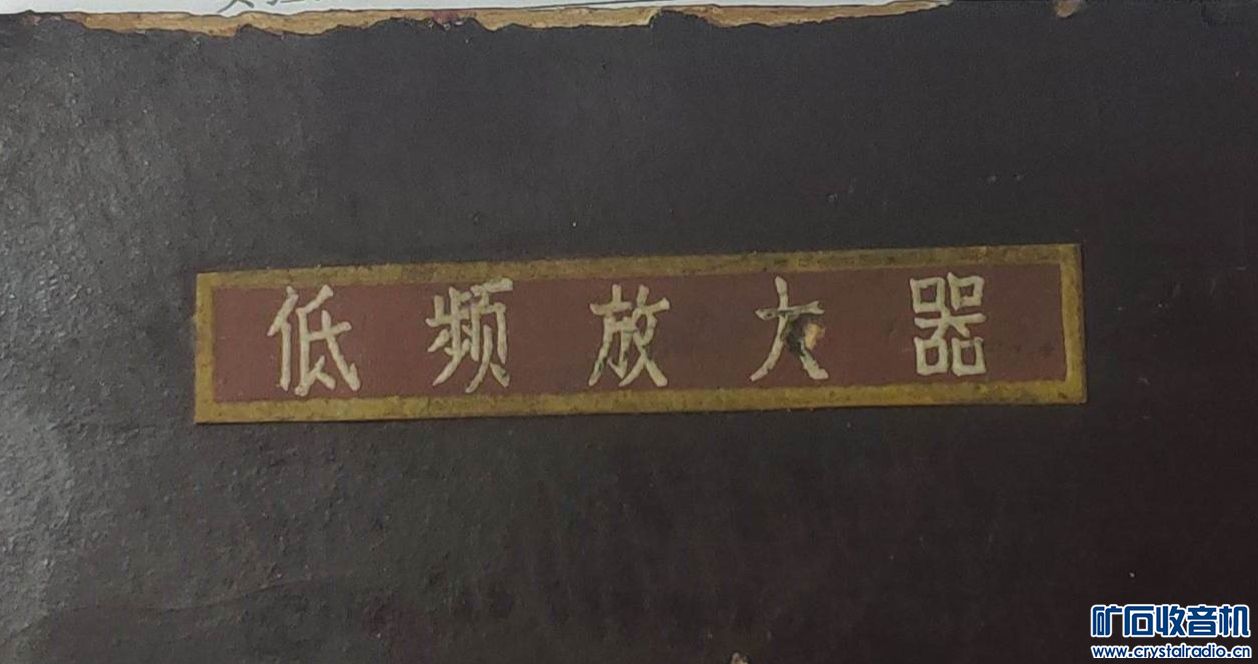 低频放大器
矿石收音机
www.crystalradio.cn